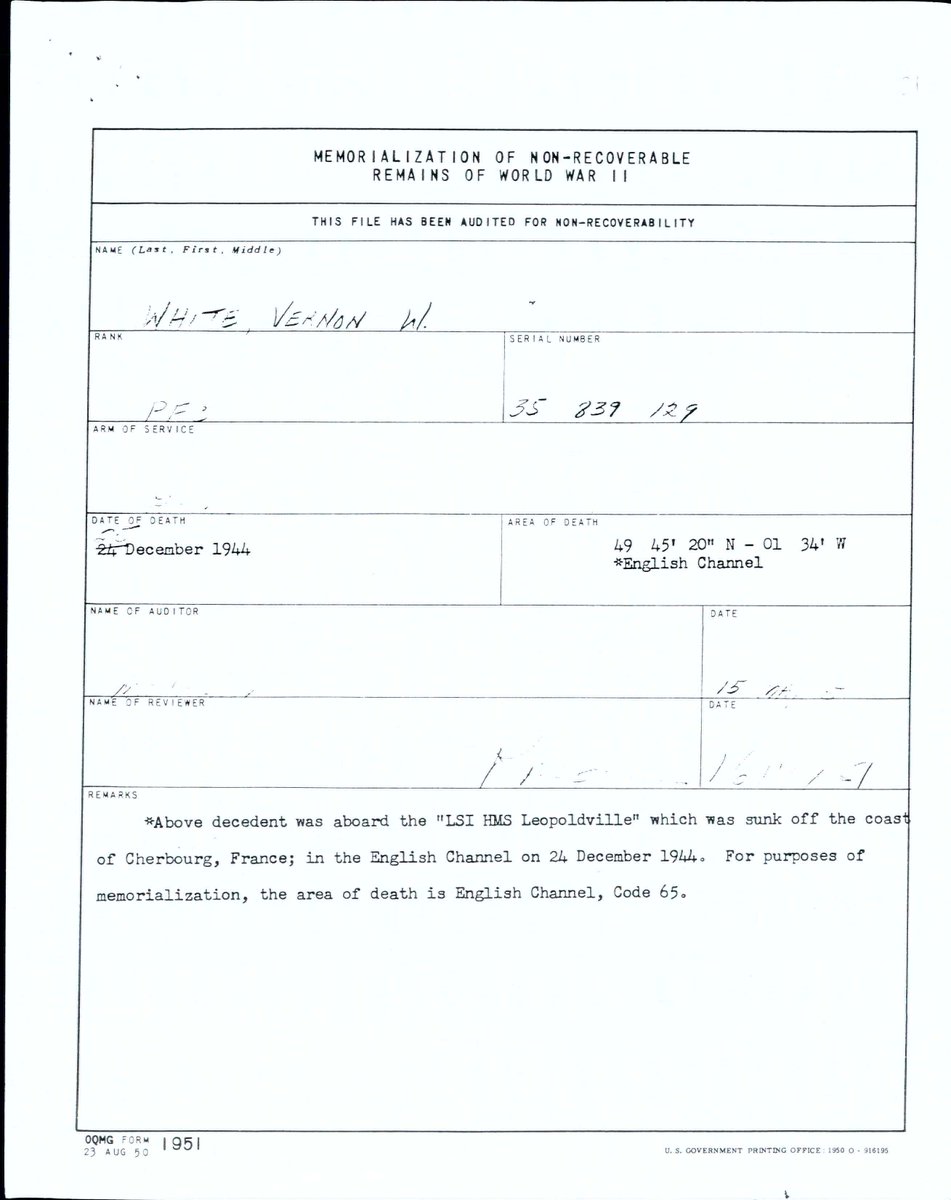 MEMORIALIZATION OF NON-RECOVERABLE
REMAINS OF WORLD WAR II
THIS FILE HAS BEEN AUDITED FOR NON-RECOVERABILITY
NAME (Last, First, Middle)
WHITE, VERNON W.
RANK
SERIAL NUMBER
PFC
35 839 129
ARM OF SERVICE
DATE OF DEATH
AREA OF DEATH
24 December 1944
49 45' 20" N - 01 34' W
*English Channel
NAME OF AUDITOR
DATE
15
NAME OF REVIEWER
DATE
REMARKS
*Above decedent was aboard the "LSI HMS Leopoldville" which was sunk off the coast
of Cherbourg, France; in the English Channel on 24 December 1944. For purposes of
memorialization, the area of death is English Channel, Code 65.
OQMG FORM 1951
23 AUG 50
U. S. GOVERNMENT PRINTING OFFICE: 1950 O - 916195